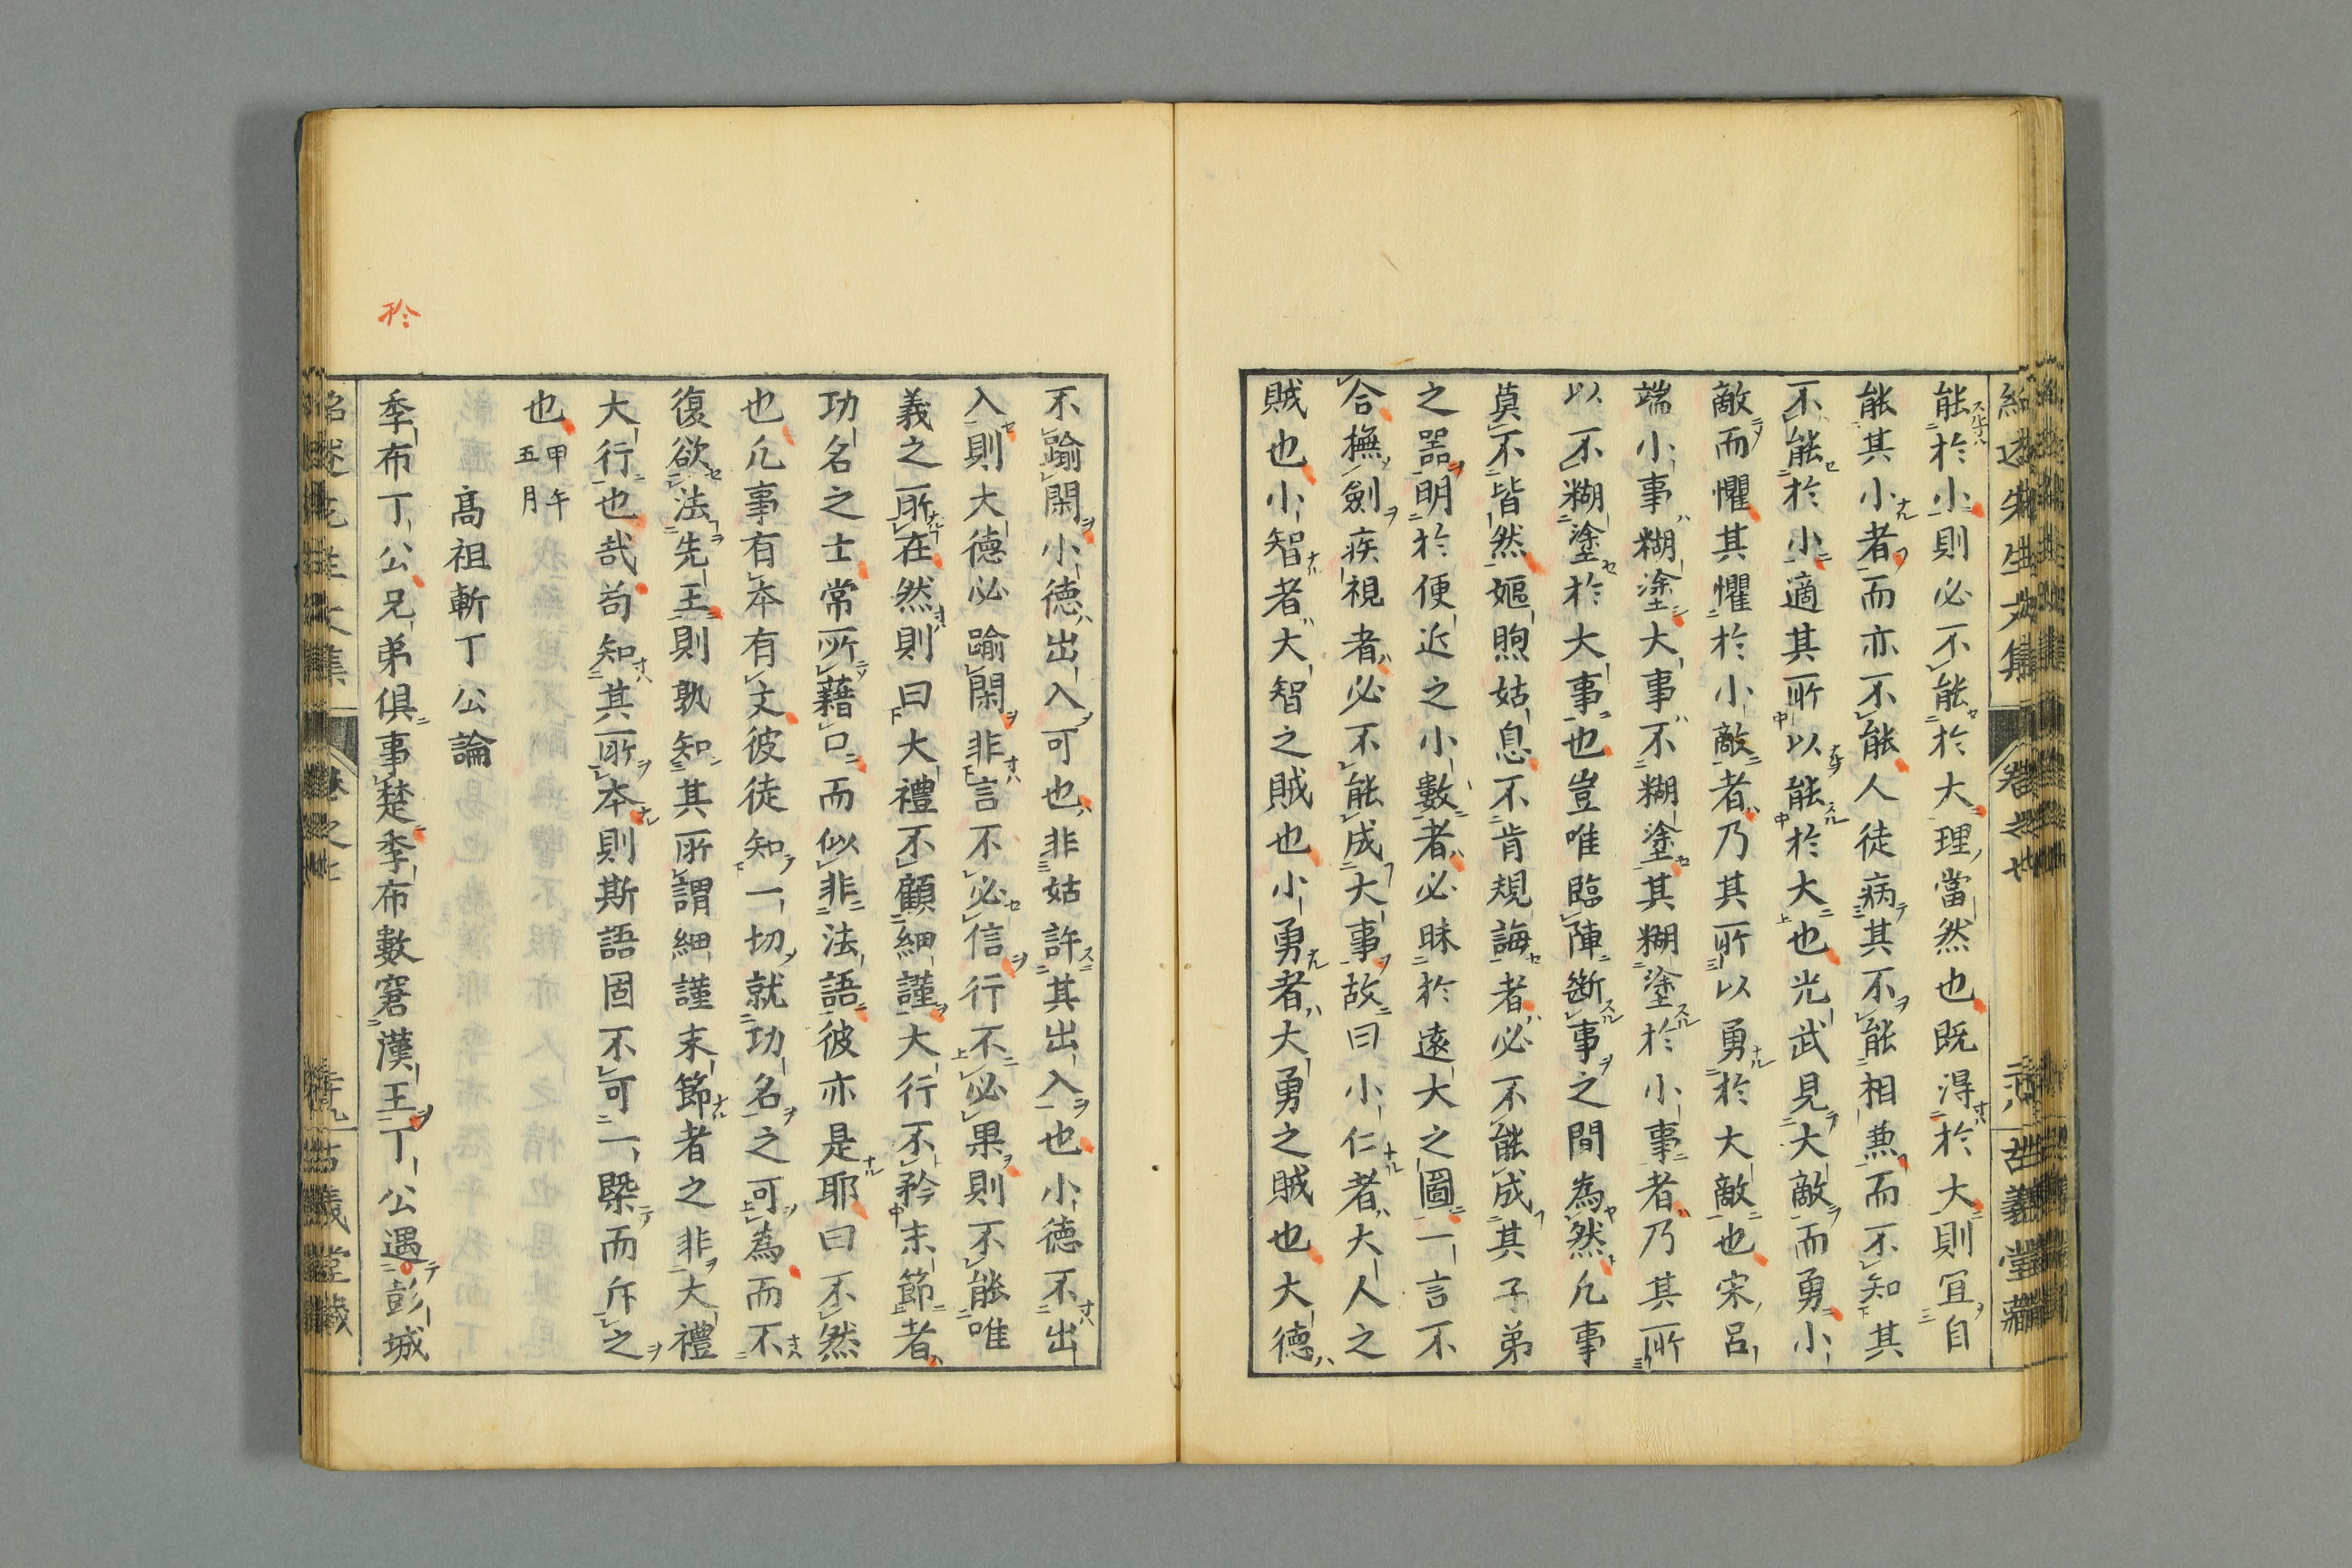 紹述先生文集
卷之七
古義堂藏
能於小則必不能於大理當然也既淂於大則冝自
能其小者而亦不能人徒病其不能相兼而不知其
不能於小適其所以能於大也光武見大敵而勇小
敵而懼其懼於小敵者乃其所以勇於大敵也宋呂
端小事糊塗大事不糊塗其糊塗於小事者乃其所
以不糊塗於大事也豈唯臨陣斷事之間為然凢事
莫不皆然嫗煦姑息不肯規誨者必不能成其子弟
之器明於便近之小數者必昧於遠大之圖一言不
合撫劍疾視者必不能成大事故曰小仁者大人之
賊也小智者大智之賊也小勇者大勇之賊也大德
不踰閑小德出入可也非姑許其出入也小德不出
入則大德必踰閑非言不必信行不必果則不能唯
義之所在然則曰大禮不顧細謹大行不矜末節者
功名之士常所藉口而似非法語彼亦是耶曰不然
也凢事有本有文彼徒知一切就功名之可為而不
復欲法先王則孰知其所謂細謹末節者之非大禮
大行也哉苟知其所本則斯語固不可一槩而斥之
也 甲午五月
高祖斬丁公論
季布丁公兄弟俱事楚季布數窘漢王丁公遇彭城
矜
紹述先生文集
卷之七
古義堂藏